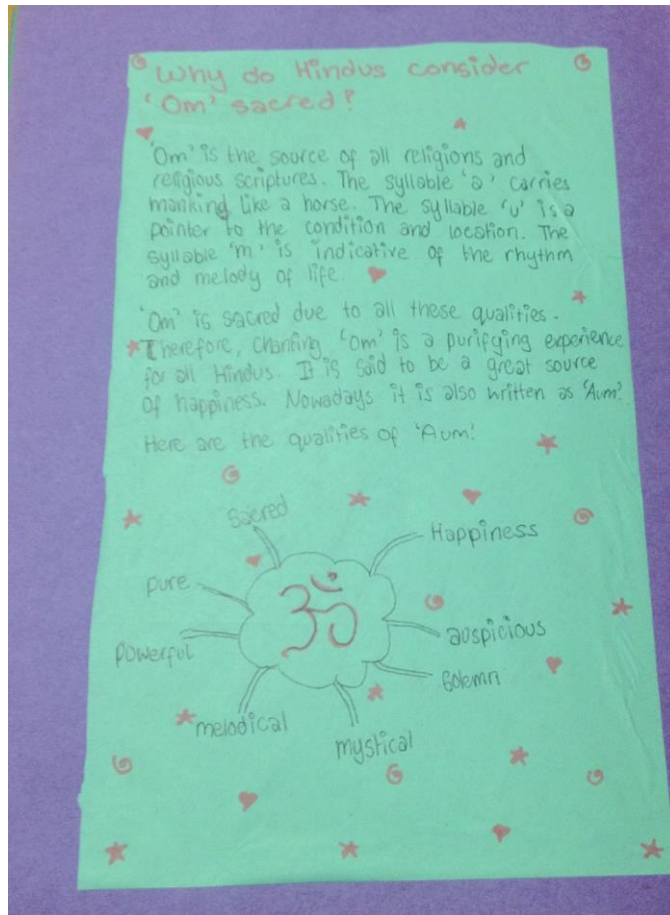 Why do Hindus consider
'Om' sacred?
'Om' is the source of all religions and
religious scriptures. The syllable 'a' carries
mankind like a horse. The syllable 'u' is a
pointer to the condition and location. The
syllable 'm' is indicative of the rhythm
and melody of life.
'Om' is sacred due to all these qualities.
Therefore, chanting 'Om' is a purifying experience
for all Hindus. It is said to be a great source
of happiness. Nowadays it is also written as 'Aum'.
Here are the qualities of 'Aum'.
Sacred
Happiness
pure
ॐ
powerful
auspicious
Solemn
melodical
mystical